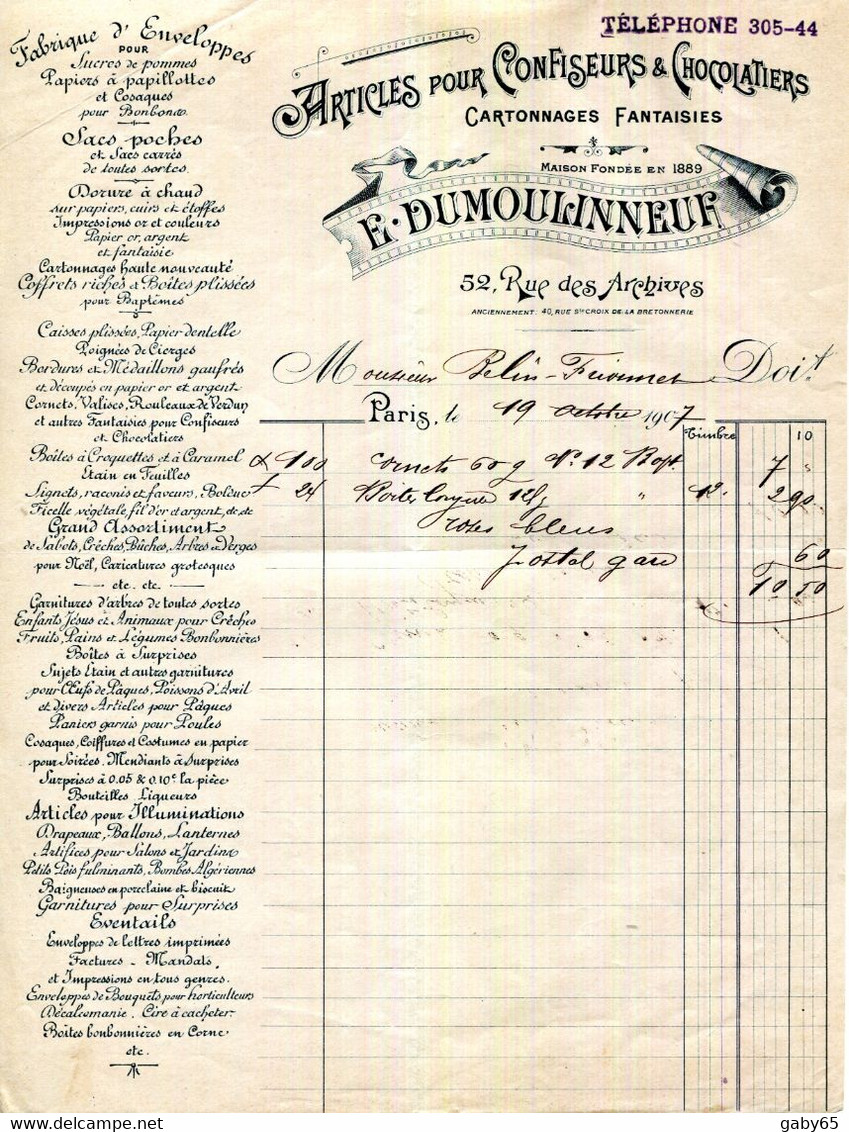 TÉLÉPHONE 305-44
ARTICLES POUR CONFISEURS & CHOCOLATIERS
CARTONNAGES FANTAISIES
MAISON FONDÉE EN 1889
E. DUMOULINNEUF
52, Rue des Archives
ANCIENNEMENT: 40, RUE STE CROIX DE LA BRETONNERIE
Fabrique d'Enveloppes
POUR
Sucres de pommes
Papiers à papillottes
et Cosaques
pour Bonbons
Sacs poches
et Sacs carrés
de toutes sortes
Dorure à chaud
sur papiers, cuirs et étoffes
Impressions or et couleurs
Papier or, argent
et fantaisie
Cartonnages haute nouveauté
Coffrets riches & Boîtes plissées
pour Baptêmes
Caisses plissées, Papier dentelle
Poignées de Cierges
Bordures et Médaillons gaufrés
et découpés en papier or et argent
Cornets, Valises, Rouleaux de Verdun
et autres Fantaisies pour Confiseurs
et Chocolatiers
Boîtes à Croquettes et à Caramel
Etain en Feuilles
Signets, raconis et faveurs, Bolduc
Ficelle végétale, fil d'or et argent, etc etc
Grand Assortiment
de Sabots, Crêches, Bûches, Arbres & Verges
pour Noël, Caricatures grotesques
etc. etc.
Garnitures d'arbres de toutes sortes
Enfants Jésus et Animaux pour Crêches
Fruits, Pains et Légumes Bonbonnières
Boîtes à Surprises
Sujets Etain et autres garnitures
pour Œufs de Pâques, Poissons d'Avril
et divers Articles pour Pâques
Paniers garnis pour Poules
Cosaques, Coiffures et Costumes en papier
pour Soirées. Mendiants à Surprises
Surprises à 0.05 & 0.10c la pièce
Bouteilles Liqueurs
Articles pour Illuminations
Drapeaux, Ballons, Lanternes
Artifices pour Salons et Jardins
Petits Pois fulminants, Bombes Algériennes
Baigneuses en porcelaine et biscuit
Garnitures pour Surprises
Eventails
Enveloppes de lettres imprimées
Factures - Mandats
et Impressions en tous genres.
Enveloppes de Bouquets pour horticulteurs
Décalcomanie. Cire à cacheter
Boîtes bonbonnières en Corne
etc.
Monsieur Belin- Doit
Paris, le 19 octobre 1907
Timbre 10
100 cornets 60 g No 12 Bapt. 7 "
24 Boites 125g " 12. 2 90
roses bleus
Postal gare 60
10 50
gaby65